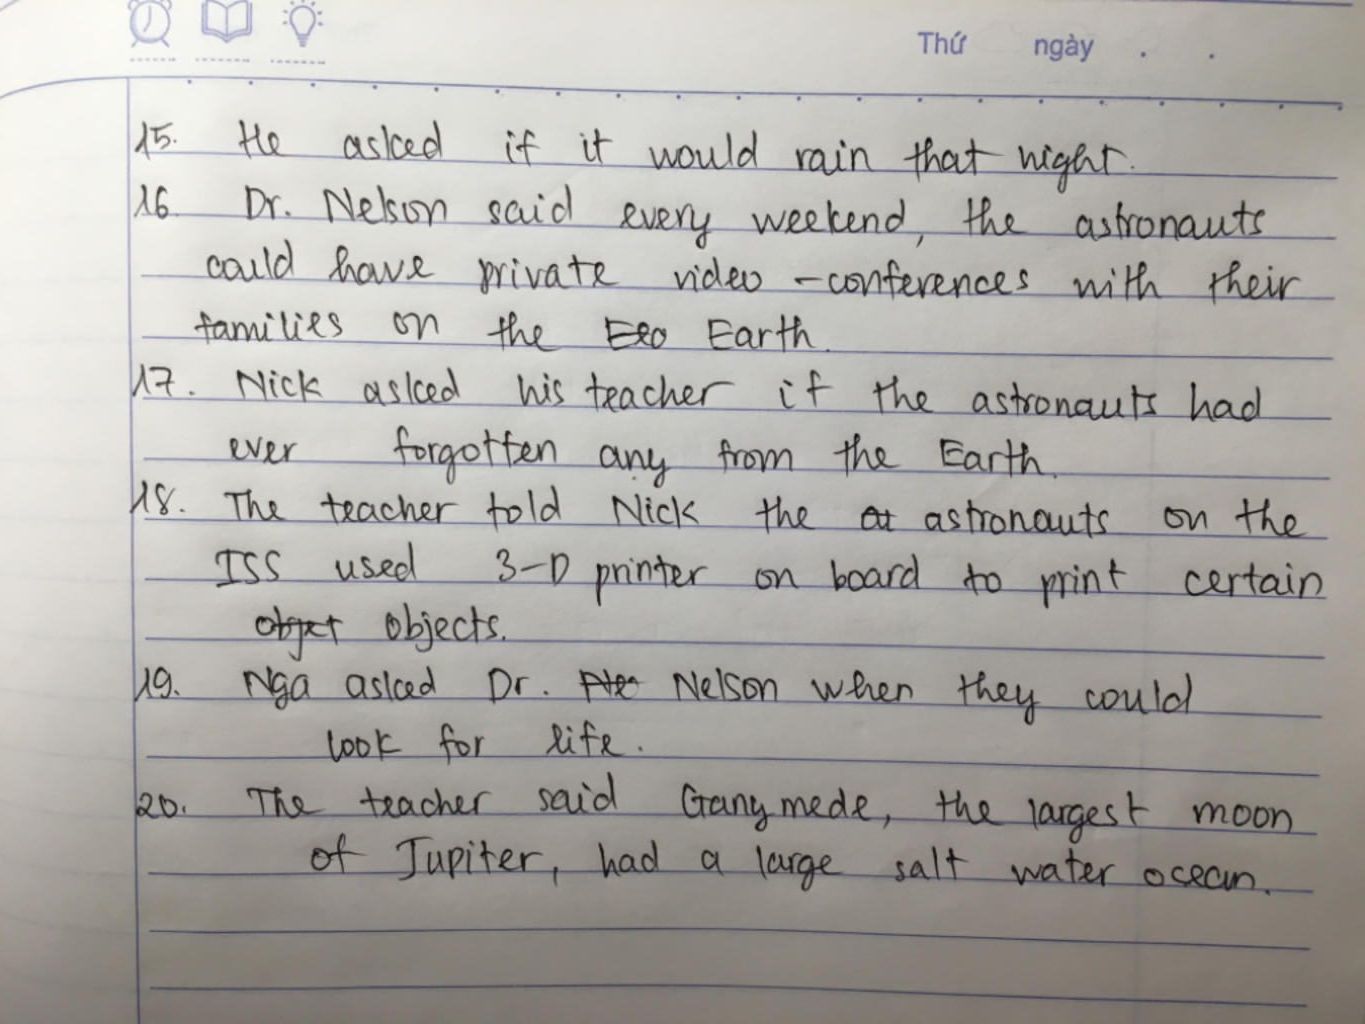 Thứ ngày . .
15. He asked if it would rain that night.
16. Dr. Nelson said every weekend, the astronauts
could have private video -conferences with their
families on the Eẻo Earth.
17. Nick asked his teacher if the astronauts had
ever forgotten any from the Earth.
18. The teacher told Nick the at astronauts on the
ISS used 3-D printer on board to print certain
objet objects.
19. Nga asked Dr. Nelson when they could
look for life.
20. The teacher said Ganymede, the largest moon
of Jupiter, had a large salt water ocean.